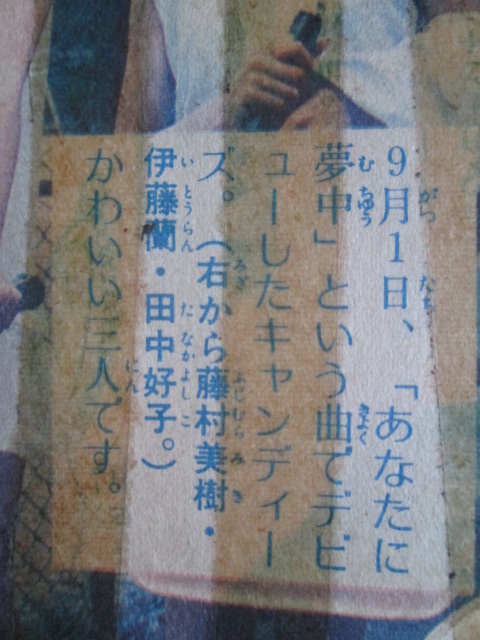 9月1日、「あなたに
夢中」という曲でデビ
ューしたキャンディー
ズ。（右から藤村美樹・
伊藤蘭・田中好子。）
かわいい三人です。